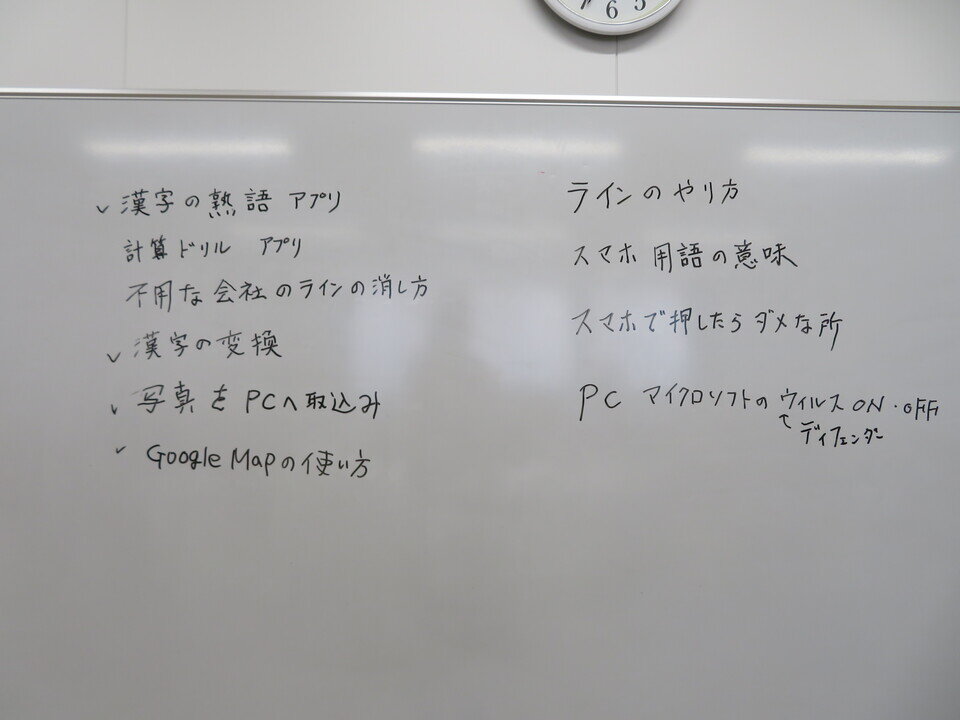 6 5
✓ 漢字の熟語 アプリ
計算ドリル アプリ
不用な会社のラインの消し方
✓ 漢字の変換
✓ 写真をPCへ取込み
✓ Google Mapの使い方
ラインのやり方
スマホ 用語の意味
スマホで押したらダメな所
PC マイクロソフトの ウィルス ON・OFF
↑ ディフェンダー